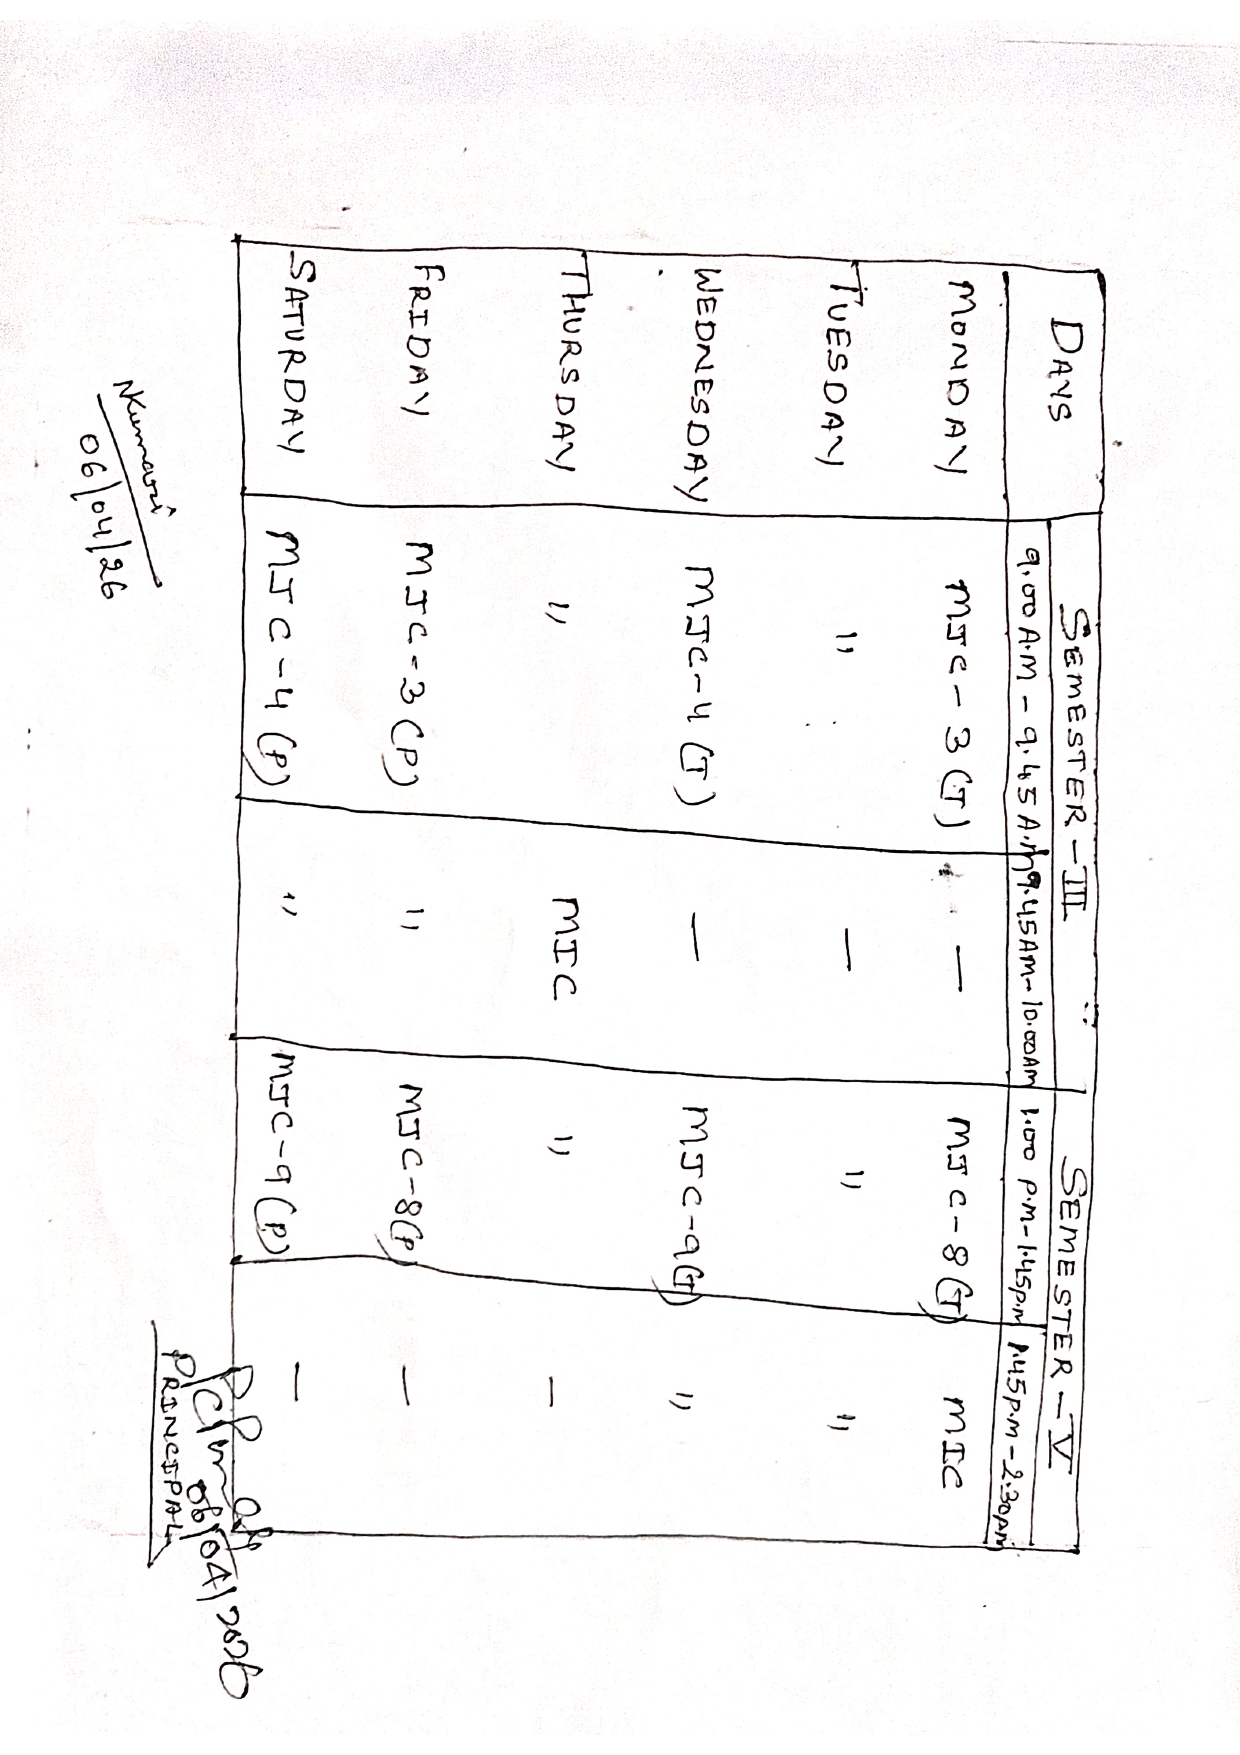 DAYS SEMESTER-III SEMESTER-V
9.00 A.M - 9.45 A.M 9.45AM-10.00AM 1.00 P.M-1.45P.M 1.45P.M-2.30PM
MONDAY MJC-3(T) — MJC-8(T) MIC
TUESDAY " — " "
WEDNESDAY MJC-4(T) — MJC-9(T) "
THURSDAY " MIC " —
FRIDAY MJC-3(P) " MJC-8(P) —
SATURDAY MJC-4(P) " MJC-9(P) —
NKumari
06/04/26
06/04/2026
PRINCIPAL